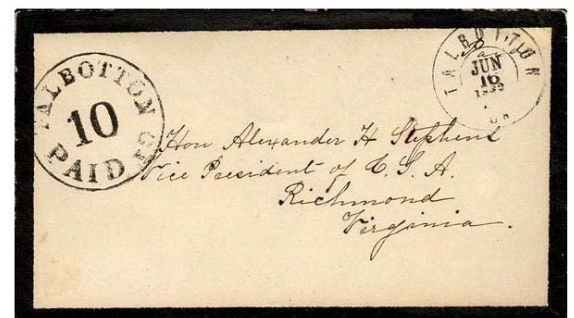 TALBOTTON GA.
10
PAID
TALBOTTON
JUN
16
Hon Alexander H Stephens
Vice President of C.S.A.
Richmond
Virginia.